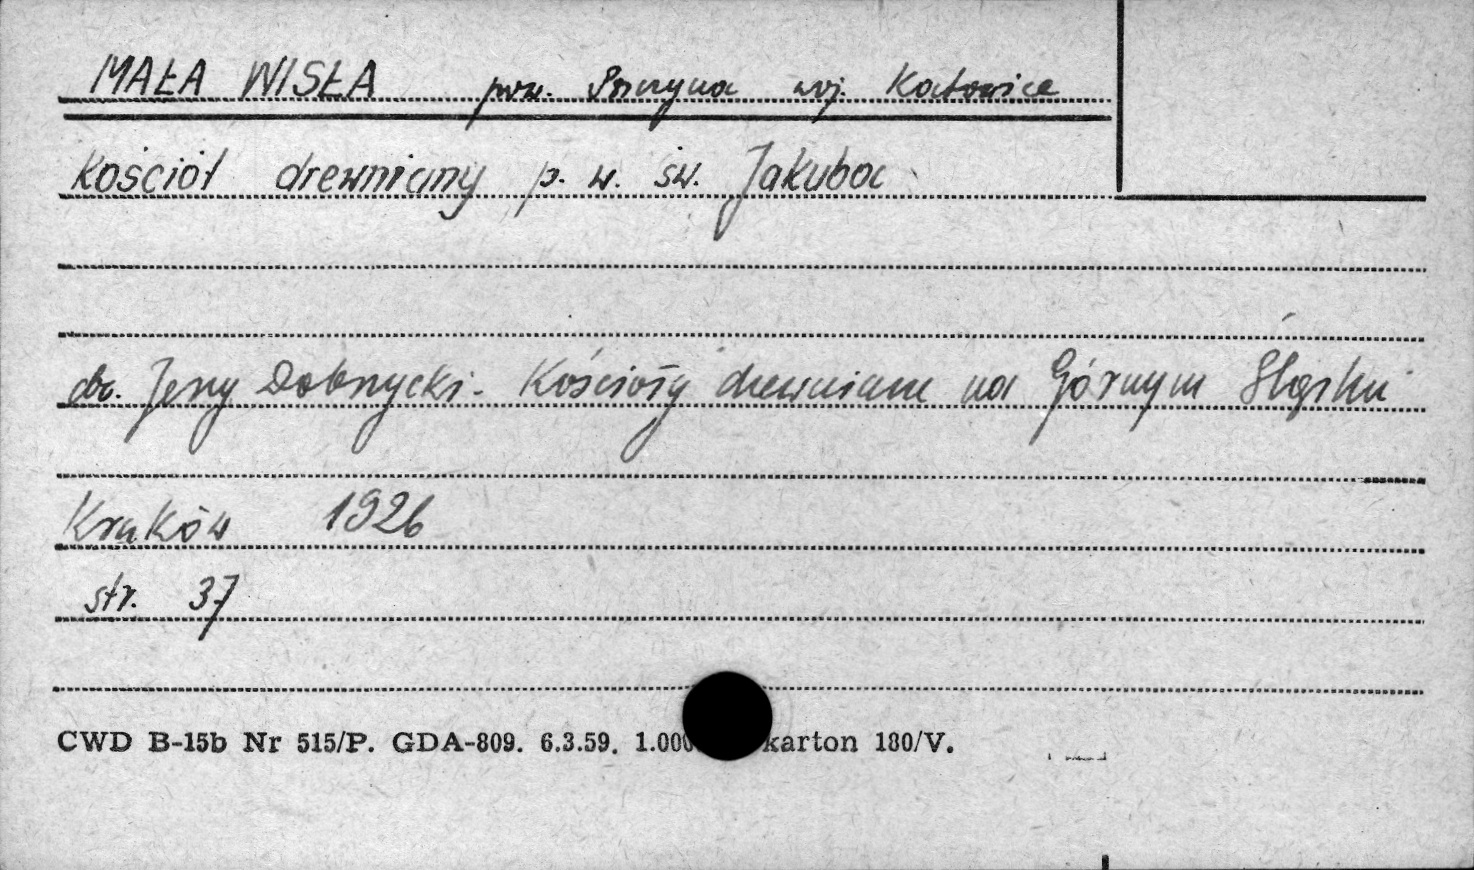 MAŁA WISŁA pow. Pszczyna woj. Katowice
Kościół drewniany p. w. św. Jakuba
Jerzy Dobrzycki - Kościoły drewniane na Górnym Śląsku
Kraków 1926
str. 37
CWD B-15b Nr 515/P. GDA-809. 6.3.59. 1.000 karton 180/V.